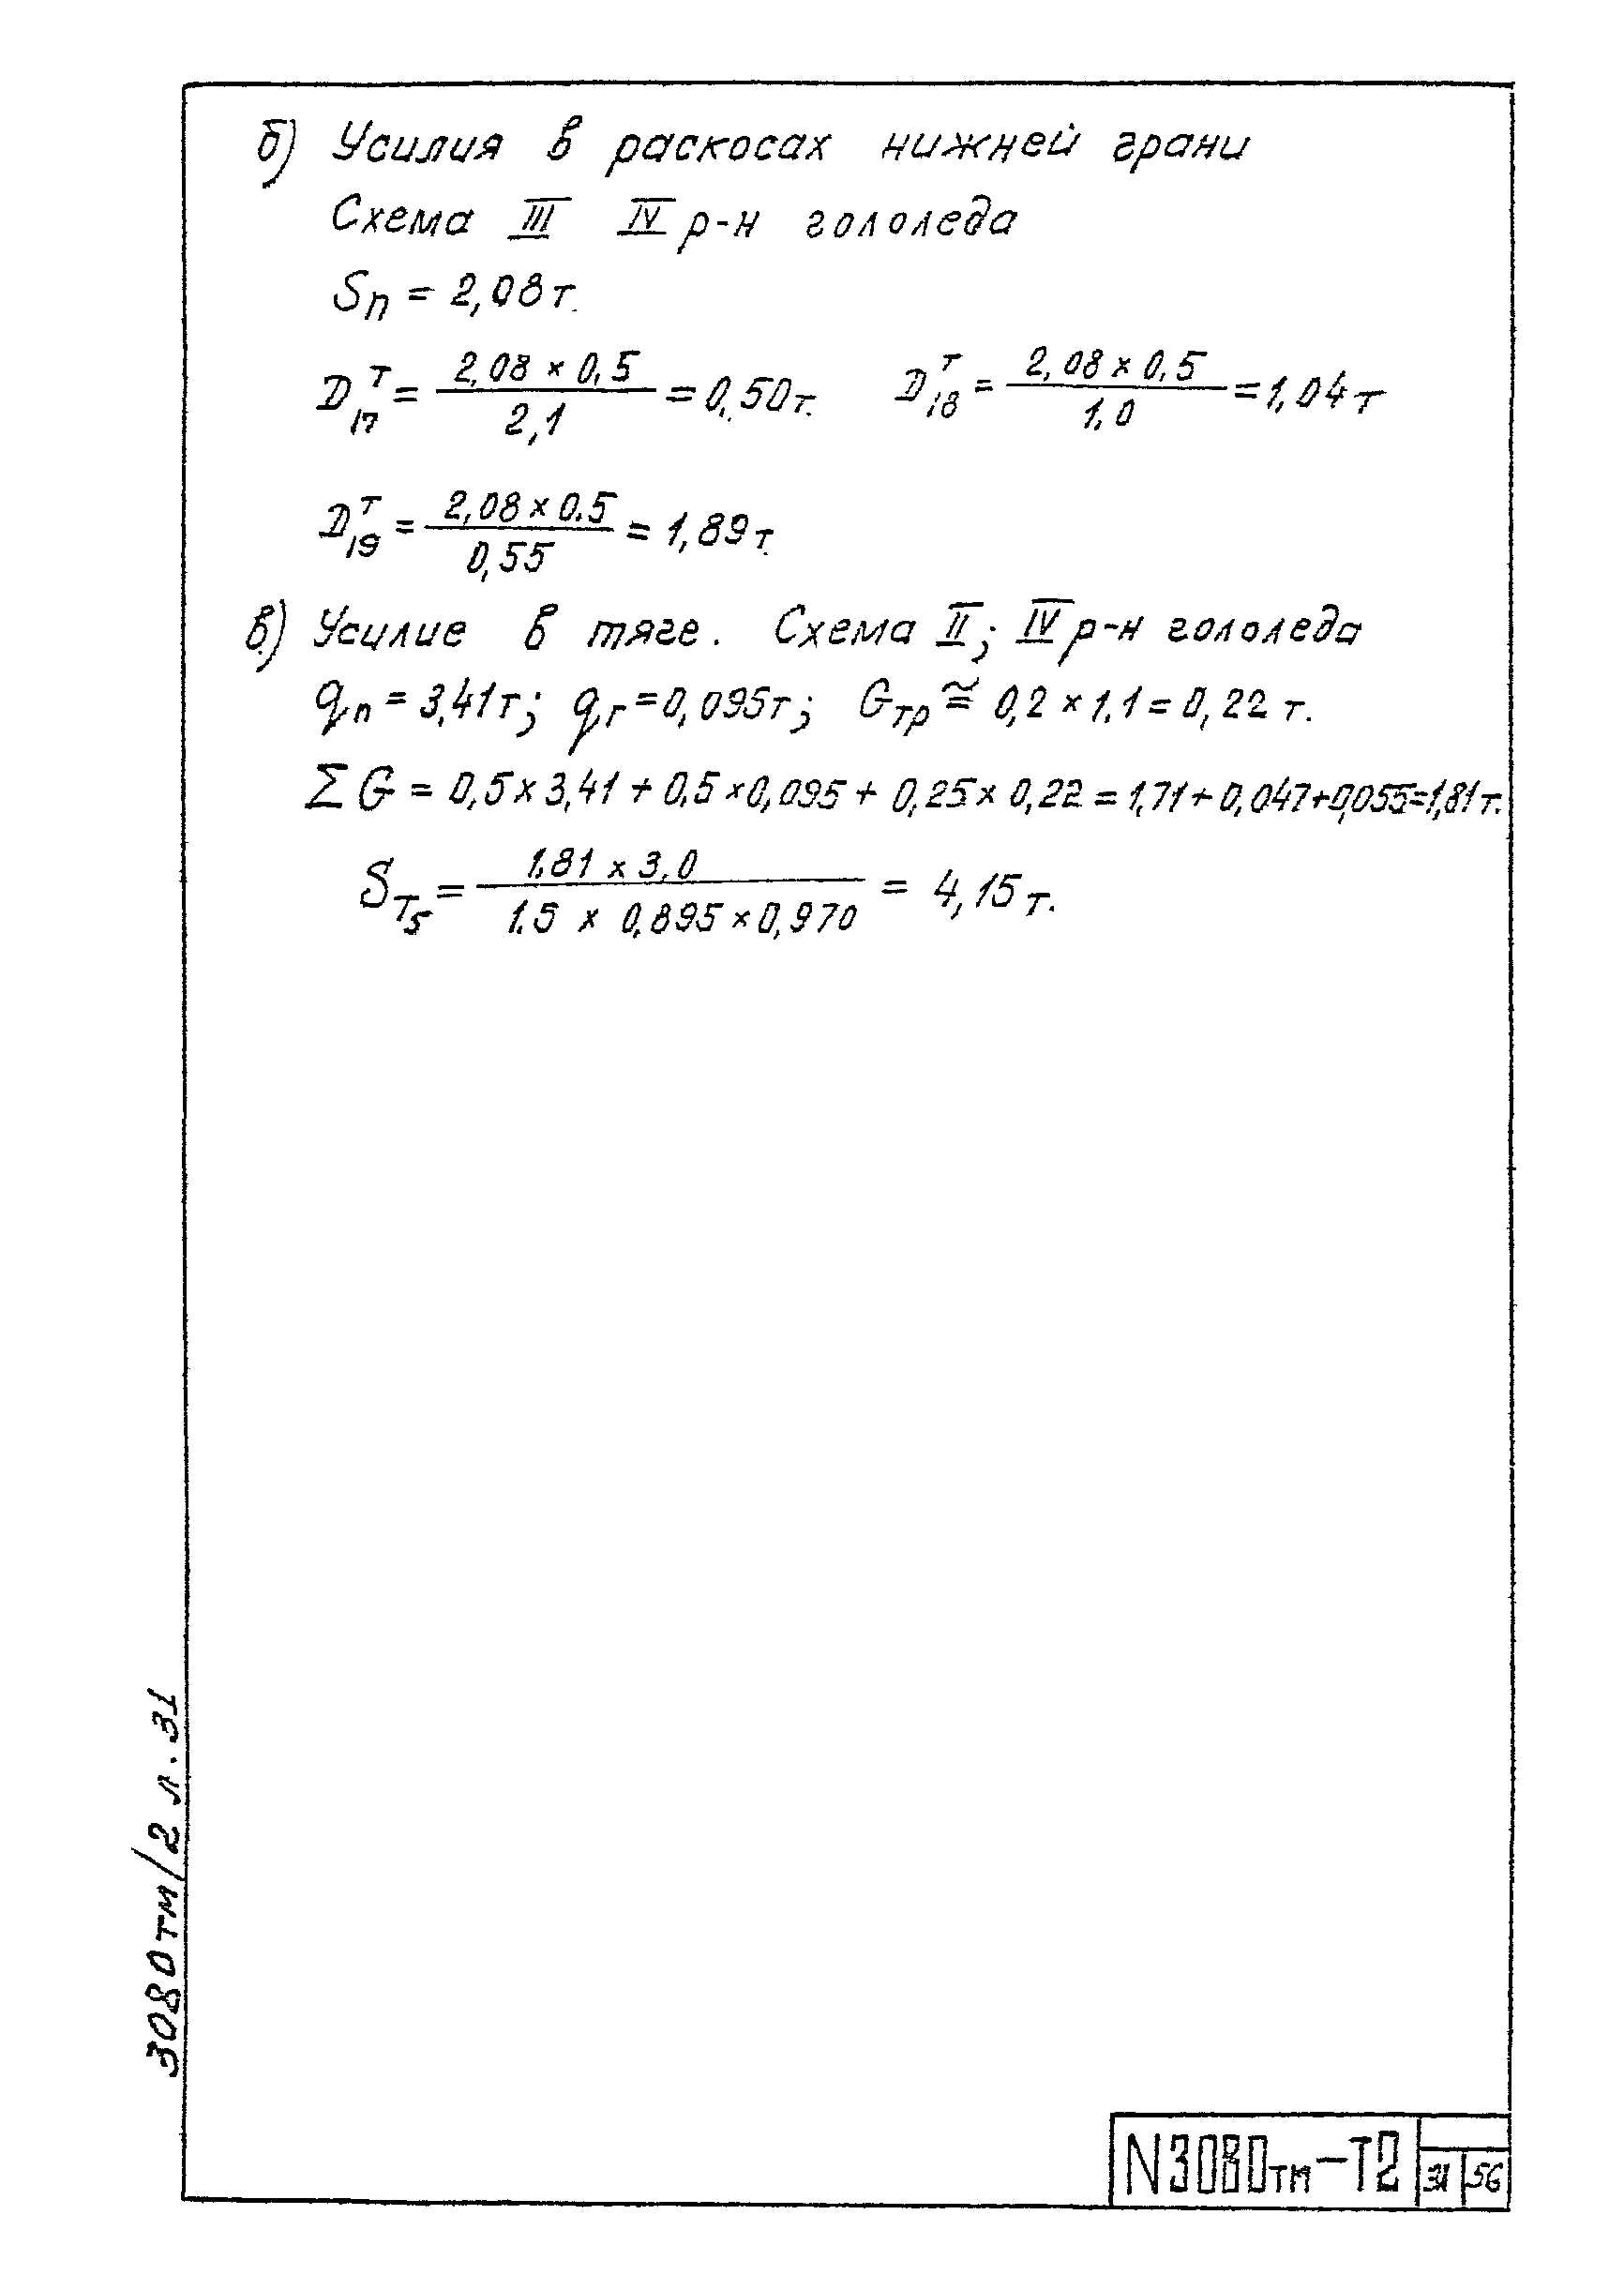 б) Усилия в раскосах нижней грани
Схема III IV р-н гололеда
Sп = 2,08 т.
D₁₇ᵀ = 2,08 × 0,5 / 2,1 = 0,50 т. D₁₈ᵀ = 2,08 × 0,5 / 1,0 = 1,04 т
D₁₉ᵀ = 2,08 × 0.5 / 0,55 = 1,89 т.
в) Усилие в тяге. Схема II; IV р-н гололеда
qп = 3,41 т; qг = 0,095 т; Gтр ≅ 0,2 × 1.1 = 0,22 т.
ΣG = 0,5 × 3,41 + 0,5 × 0,095 + 0,25 × 0,22 = 1,71 + 0,047 + 0,055 = 1,81 т.
Sт₅ = 1.81 × 3,0 / 1.5 × 0,895 × 0,970 = 4,15 т.
3080тм/2 л. 31
N3080тм-Т2 31 56